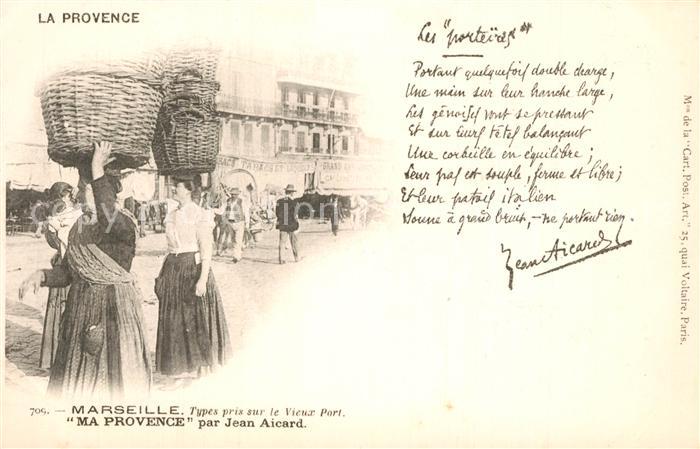 LA PROVENCE
Les "porteïres"
Portant quelquefois double charge,
Une main sur leur hanche large,
Les génoises vont se pressant
Et sur leurs têtes balançant
Une corbeille en équilibre ;
Leur pas est souple, ferme et libre ;
Et leur patois italien
Sonne à grand bruit, - ne portant rien.
Jean Aicard
Mon de la "Cart. Post. Art." 25, quai Voltaire, Paris.
BACS TABACS ET LIQUEURS GRAND
Copyright
709. — MARSEILLE. Types pris sur le Vieux Port.
"MA PROVENCE" par Jean Aicard.